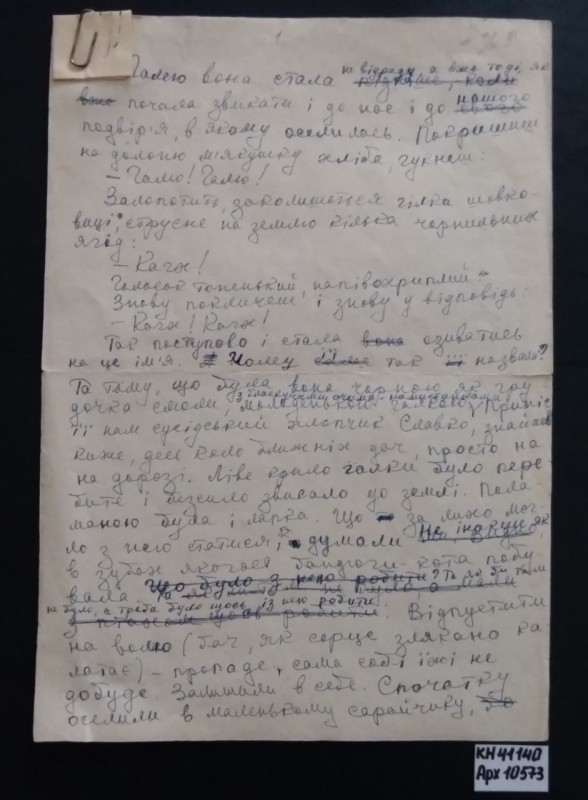 1
Галею вона стала не відразу, а вже тоді, як
пізніше, коли
вже почала звикати і до нас і до нашого
свого
подвір'я, в якому оселилась. Покришиш
на долоню м'якушку хліба, гукнеш:
– Галю! Галю!
Залопотить, заколишеться гілка шовко-
виці, струсне на землю кілька чорнильних
ягід:
– Кагх!
Голосок тоненький, напівохриплий.
Знову покличеш, і знову у відповідь:
– Кагх! Кагх!
Так поступово і стала вона озиватись
на це ім'я. Чому саме так її назвали?
Та тому, що була вона чорною як гру
дочка смоли, молоденькою галкою. Приніс
з блискучими очима-намистинками
її нам сусідський хлопчик Славко, знайшов
каже, десь коло ближніх дач, просто на
на дорозі. Ліве крило галки було пере-
бите і безсило звисало до землі. Пола
маною була і лапка. Що за лихо мог-
ло з нею статися, думали Не інакше як
в зубах якогось бандюги-кота побу
вала. Що було з нею робити? Та як би там
не було, а треба було щось із нею робити.
з птахом щось робити. Відпустити
на волю (бач, як серце злякано ка-
латає) – пропаде, сама собі їжі не
добуде. Залишили в себе. Спочатку
оселили в маленькому сарайчику, бо
КН 41140
Арх 10573